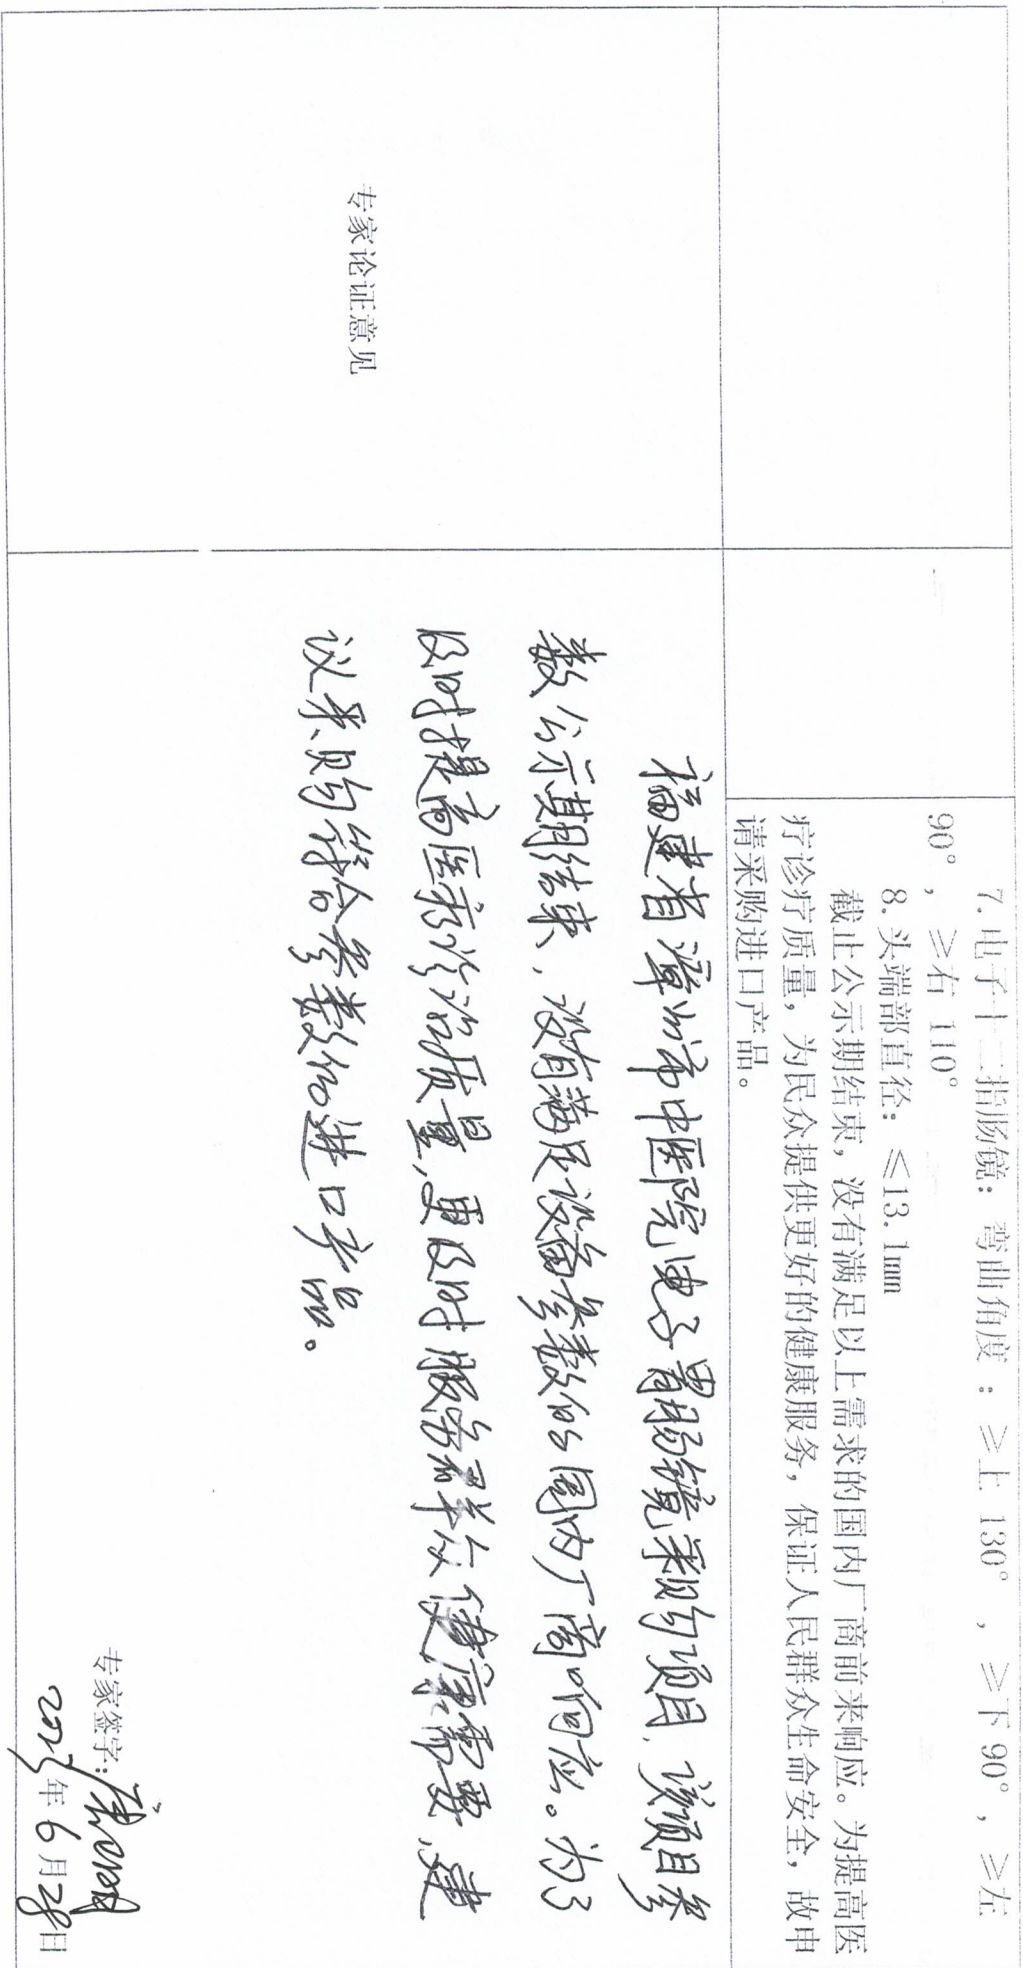 7.电子十二指肠镜：弯曲角度：≥上 130°，≥下 90°，≥左
90°，≥右 110°
8.头端部直径：≤13.1mm
截止公示期结束，没有满足以上需求的国内厂商前来响应。为提高医
疗诊疗质量，为民众提供更好的健康服务，保证人民群众生命安全，故申
请采购进口产品。
专家论证意见
福建省漳州市中医院电子胃肠镜采购项目，该项目参
数公示期结束，没有满足设备参数的国内厂商响应。为了
及时提高医疗诊治质量，更及时服务群众健康需要，建
议采购符合参数的进口产品。
专家签字：
年6月28日